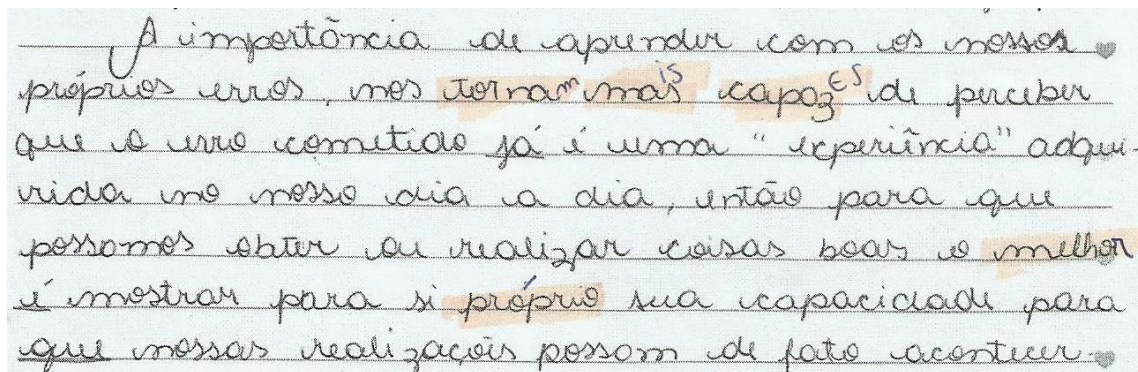 A importância de aprender com os nossos
próprios erros, nos tornam mais capazES de perceber
que o erro cometido já é uma "experiência" adqui-
rida no nosso dia a dia, então para que
possamos obter ou realizar coisas boas o melhor
é mostrar para si próprio sua capacidade para
que nossas realizações possam de fato acontecer.